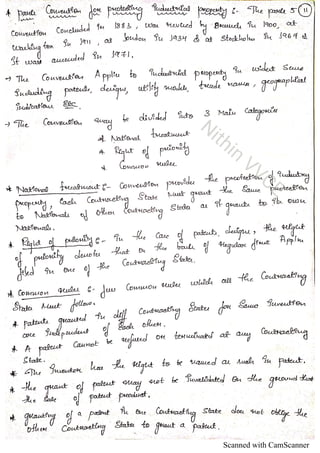 * Paris Convention for protecting Industrial property :- The paris 11
Convention Concluded in 1883, was revised by Brussels in 1900, at
Washington in 1911, at London in 1934 & at Stockholm in 1967 &
It was amended in 1971.
→ The Convention Applies to Industrial property in widest Sense
Including patents, designs, utility models, trade names, geographical
indications etc.
→ The Convention may be divided into 3 Main Categories
* National treatment
* Right of priority
* Common rules
* National treatment :- Convention provides the protection of Industry
property, Each Contracting State must grant the Same protection
to Nationals of other Contracting States as it grants to its own
Nationals.
* Right of priority :- In the Case of patents, designs, the Right
of priority denotes that on the basis of Regular first Appln
filed in one of the Contracting State.
* Common rules :- few Common rules which all the Contracting
State Must follow.
* Patents granted in diff Contracting States for Same Invention
are Independent of Each other.
* A patent Cannot be refused or terminated at any Contracting
State.
* The Inventor has the Right to be named as such in patent.
* The grant of patent may not be Invalidated on the ground that
the Sale of patent product.
* granting of a patent in one Contracting State does not oblige the
other Contracting States to grant a patent.
Nithin
Scanned with CamScanner